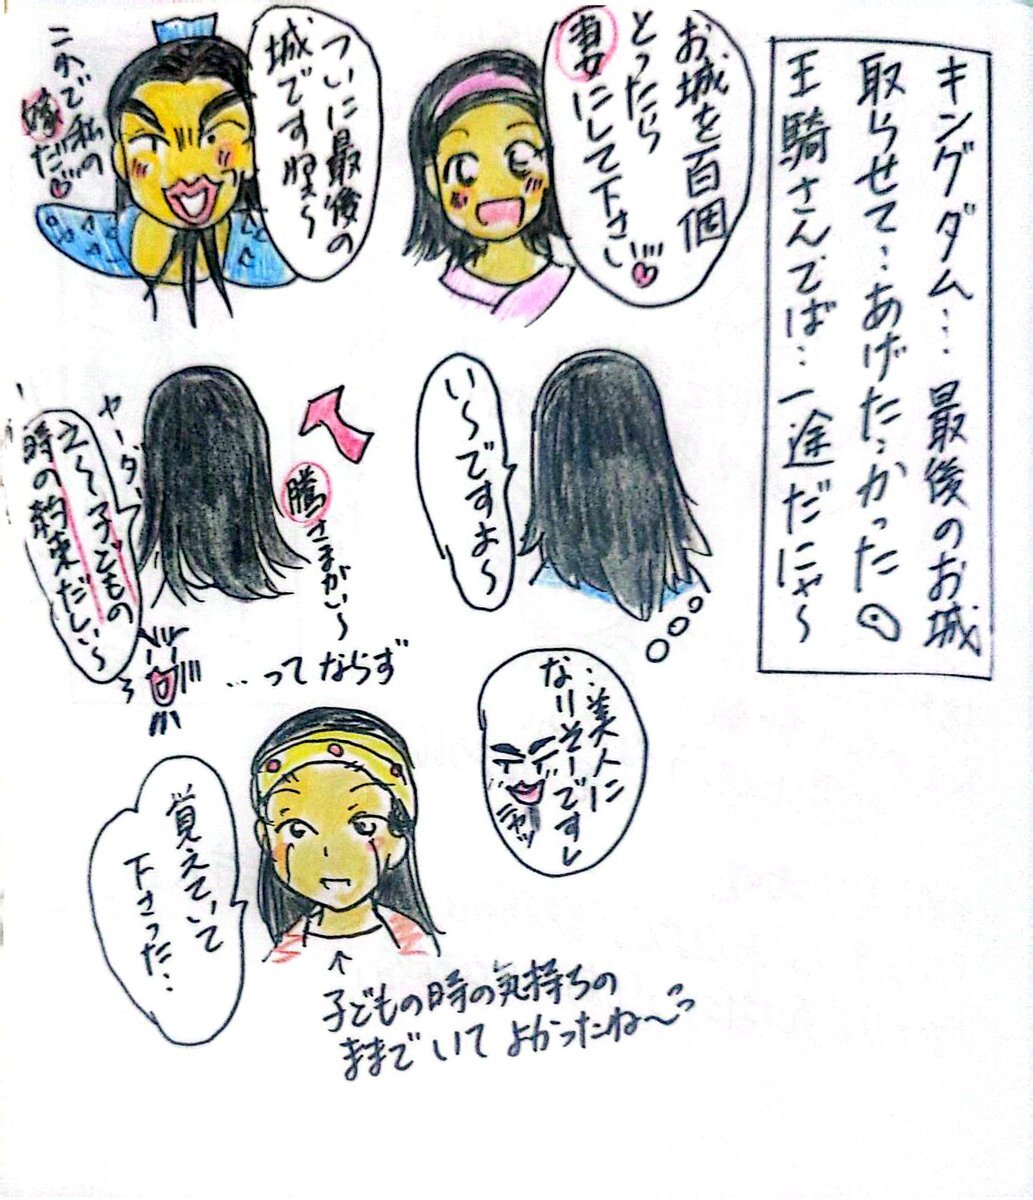 キングダム…最後のお城
取らせて…あげた…かった
王騎さんてば…一途だにゃ〜
お城を百個
とったら
妻にして下さい♡
ついに最後の
城です摎〜
これで私の
嫁だ♡
い〜ですよ〜
…美人に
なりそーですし
ニヤッ
騰さまがい〜
…ってならず
ヤーダー
え〜子どもの
時の約束だしい〜
覚えていて
下さった…
↑
子どもの時の気持ちの
ままでいてよかったね〜っ